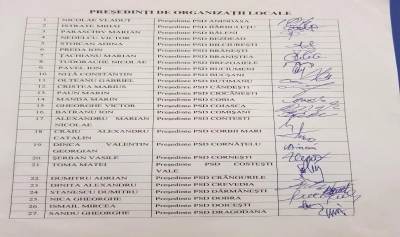 PREȘEDINȚI DE ORGANIZAȚII LOCALE
1 NICOLAE VLADUT Președinte PSD ANINOASA
2 ISTRATE MIHAI Președinte PSD BĂRBULEȚU
3 PARASCHIV MARIAN Președinte PSD BĂLENI
4 NEDELCU VICTOR Președinte PSD BEZDEAD
5 STOICAN ADINA Președinte PSD BILCIUREȘTI
6 PREDA ION Președinte PSD BRĂNEȘTI
7 ȚACHIANU MARIAN Președinte PSD BRANIȘTEA
8 TUDORACHE NICOLAE Președinte PSD BREZOAELE
9 PAVEL ION Președinte PSD BUCIUMENI
10 NIȚĂ CONSTANTIN Președinte PSD BUCȘANI
11 OLTEANU GABRIEL Președinte PSD BUTIMANU
12 CRISTEA MARIUS Președinte PSD CÂNDEȘTI
13 PAUN MARIN Președinte PSD CIOCĂNEȘTI
14 MANDA MARIN Președinte PSD COBIA
15 GHEORGHE VICTOR Președinte PSD COJASCA
16 BATEANU ION Președinte PSD COMIȘANI
17 ALEXANDRU MARIAN Președinte PSD CONTESTI
NICOLAE
18 CRAIU ALEXANDRU Președinte PSD CORBII MARI
CATALIN
19 DINCA VALENTIN Președinte PSD CORNĂȚELU
GEORGIAN
20 ȘERBAN VASILE Președinte PSD CORNEȘTI
21 TOMA MATEI Președinte PSD COSTEȘTI
VALE
22 DUMITRU ADRIAN Președinte PSD CRÂNGURILE
23 DINITA ALEXANDRU Președinte PSD CREVEDIA
24 STANESCU DUMITRU Președinte PSD DĂRMĂNEȘTI
25 NICA GHEORGHE Președinte PSD DOBRA
26 ISMAIL MIRCEA Președinte PSD DOICEȘTI
27. SANDU GHEORGHE Președinte PSD DRAGODANA